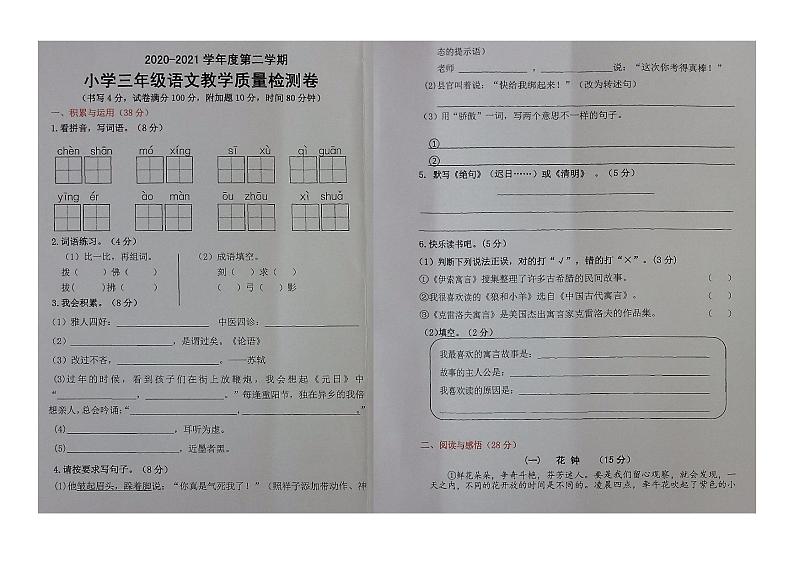 2020-2021 学年度第二学期
小学三年级语文教学质量检测卷
（书写4分，试卷满分100分，附加题10分，时间80分钟）
一、积累与运用（38分）
1.看拼音，写词语。（8分）
chèn shān  mó xíng  sī xù  qì guān
yīng ér  ào màn  ōu zhōu  xì shuǎ
2.词语练习。（4分）
（1）比一比，再组词。 （2）成语填空。
拨（ ）佛（ ） 刻（ ）求（ ）
拔（ ）拂（ ） （ ）弓（ ）影
3.我会积累。（8分）
（1）雅人四好：____________ 中医四诊：____________
（2）____________，是谓过矣。《论语》
（3）改过不吝，____________。——苏轼
（3)过年的时候，看到孩子们在街上放鞭炮，我会想起《元日》中
“____________，____________。”每逢重阳节，独在异乡的我倍
想亲人,总会吟诵：“____________,____________。”
(4)____________，耳听为虚。
(5)____________，近墨者黑。
4.请按要求写句子。（8分）
(1)他皱起眉头，跺着脚说：“你真是气死我了！”（照样子添加带动作、神
态的提示语）
老师 ____________，____________说：“这次你考得真棒！”
(2)县官叫着说：“快给我绑起来！”（改为转述句）
(3）用“骄傲”一词，写两个意思不一样的句子。
①____________
②____________
5. 默写《绝句》（迟日……）或《清明》 。（5分）
6.快乐读书吧。(5分)
(1）判断下列说法正误，对的打“√”，错的打“×”。(3分)
①《伊索寓言》搜集整理了许多古希腊的民间故事。 （ ）
②我很喜欢读的《狼和小羊》选自《中国古代寓言》。 （ ）
③《克雷洛夫寓言》是美国杰出寓言家克雷洛夫的作品集。 （ ）
(2)填空。（2分）
我最喜欢的寓言故事是：____________
故事的主人公是：____________
我喜欢读的原因是：____________
二、阅读与感悟（28分）
(一) 花 钟 （15分）
①鲜花朵朵，争奇斗艳，芬芳迷人。要是我们留心观察，就会发现，一
天之内，不同的花开放的时间是不同的。凌晨四点，牵牛花吹起了紫色的小